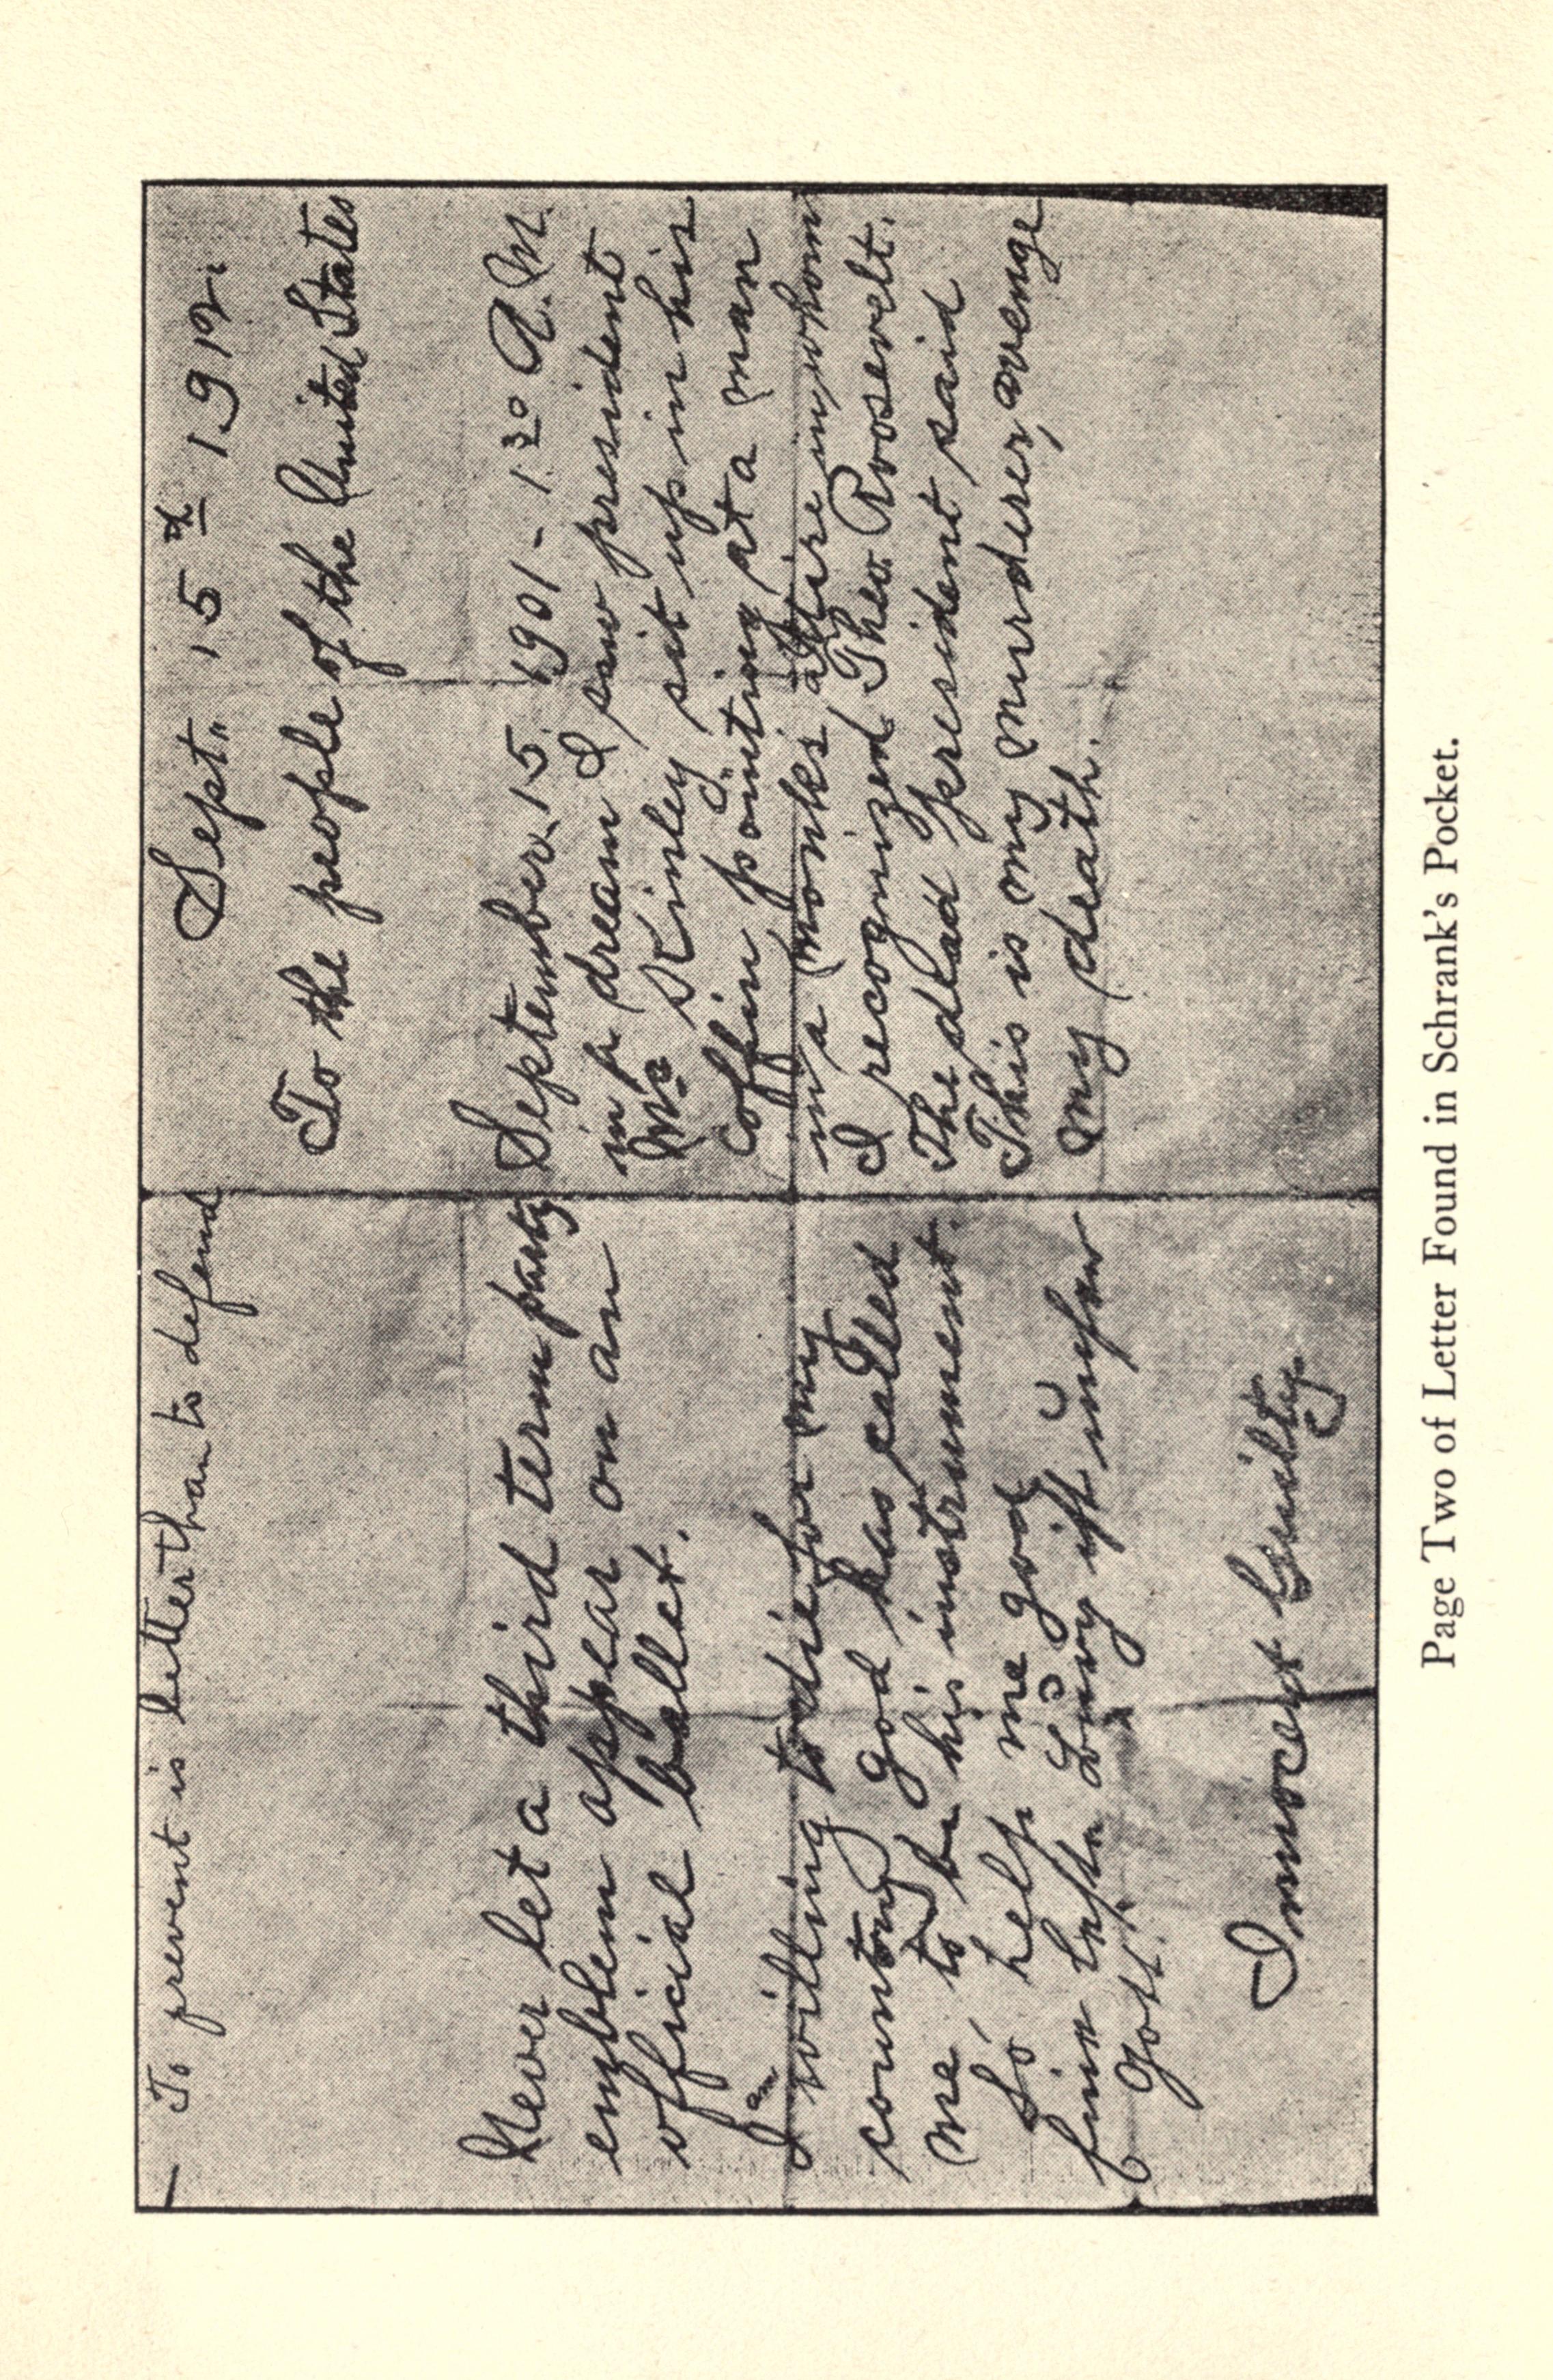 To prevent is better than to defend
Never let a third term party
emblem appear on an
official ballot.
I am willing to die for my
country, god has called
me to be his instrument.
So help me god
fine Burg ist unser
Gott.
Innocent Guilty.
Sept. 15th 1912.
To the people of the United States
September. 15. 1901 - 1.30 A. M.
in a dream I saw president
Mc Kinley sit up in his
coffin, pointing at a man
in a monks attire in whom
I recognized Theo. Roosevelt.
The dead president said
This is my murderer, avenge
my death.
Page Two of Letter Found in Schrank's Pocket.